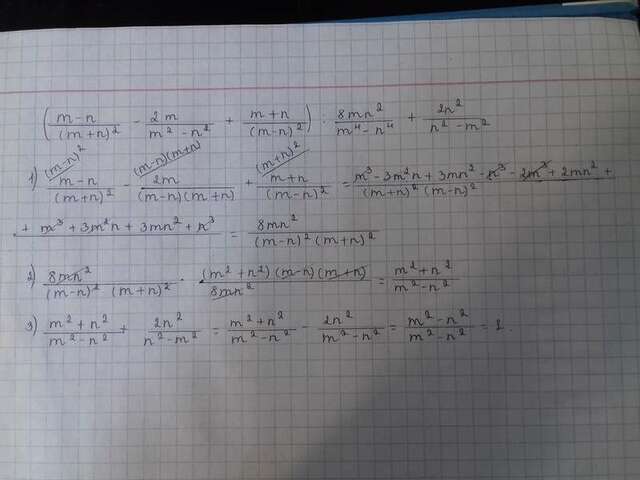 (m-n/(m+n)² - 2m/m²-n² + m+n/(m-n)²) : 8mn²/m⁴-n⁴ + 2n²/n²-m²
(m-n)² (m-n)(m+n) (m+n)²
1) m-n/(m+n)² - 2m/(m-n)(m+n) + m+n/(m-n)² = m³-3m²n+3mn²-n³-2m³+2mn²+/(m+n)²(m-n)²
+ m³+3m²n+3mn²+n³ = 8mn²/(m-n)²(m+n)²
2) 8mn²/(m-n)² (m+n)² · (m²+n²)(m-n)(m+n)/8mn² = m²+n²/m²-n²
3) m²+n²/m²-n² + 2n²/n²-m² = m²+n²/m²-n² - 2n²/m²-n² = m²-n²/m²-n² = 1.